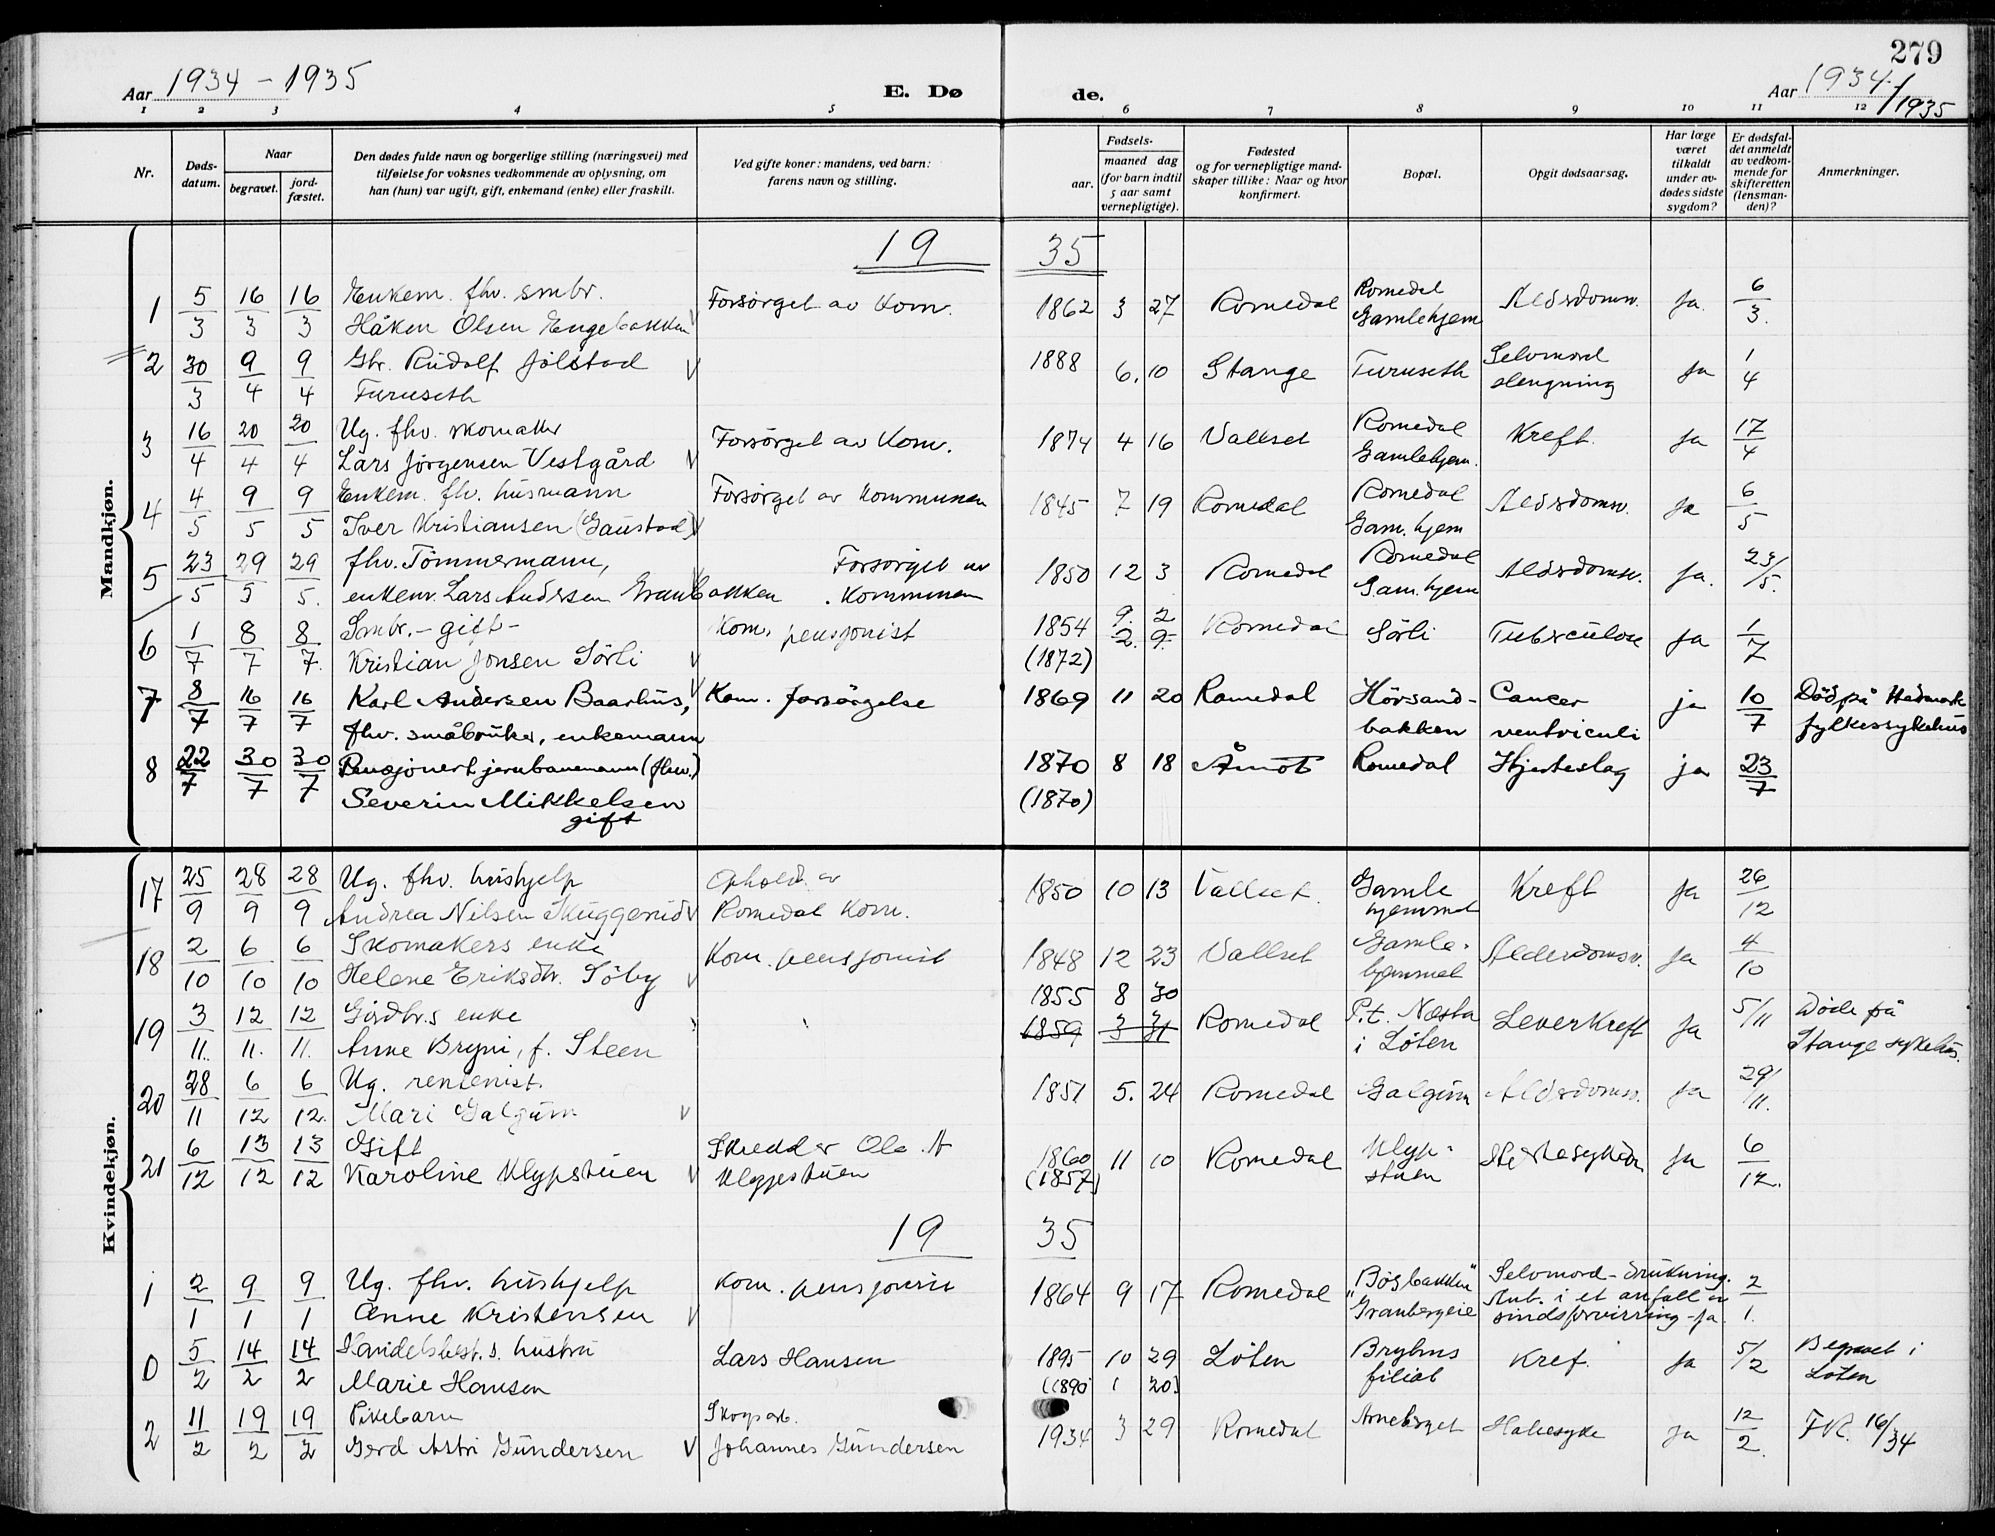 279
Aar 1934 - 1935
E. Dø de.
Aar 1934 / 1935
1 2 3 4 5 6 7 8 9 10 11 12
Nr.
Døds-datum.
Naar
begravet.
jord-fæstet.
Den dødes fulde navn og borgerlige stilling (næringsvei) med
tilføielse for voksnes vedkommende av oplysning, om
han (hun) var ugift, gift, enkemand (enke) eller fraskilt.
Ved gifte koner: mandens, ved barn:
farens navn og stilling.
Fødsels-
aar.
maaned dag
(for barn indtil
5 aar samt
vernepligtige).
Fødested
og for vernepligtige mand-
skaper tillike: Naar og hvor
konfirmert.
Bopæl.
Opgit dødsaarsag.
Har læge
været
tilkaldt
under av-
dødes sidste
sygdom?
Er dødsfal-
det anmeldt
av vedkom-
mende for
skifteretten
(lensman-
den)?
Anmerkninger.
Mandkjøn.
19 35
1 5/3 16/3 16/3 Enkem. fhv. smbr. Forsörget av Kom. 1862 3 27 Romedal Romedal Aldersdomsv. Ja. 6/3.
Håken Olsen Engebakken Gamlehjem
2 30/3 9/4 9/4 Gbr. Rudolf Jölstad 1888 6. 10 Stange Furuseth Selvmord Ja 1/4
Furuseth
3 16/4 20/4 20/4 Ug. fhv. skomaker Forsörget av Kom. 1874 4 16 Vallset Romedal Kreft. Ja 17/4
Lars Jörgensen Vestgård Gamlehjem.
4 4/5 9/5 9/5 Enkem. fhv. husmann Forsörget av Kommunen 1845 7 19 Romedal Romedal Aldersdomsv. Ja 6/5
Iver Kristiansen (Gaustad) Gam. hjem
5 23/5 29/5 29/5. fhv. Tömmermann, Forsörget av 1850 12 3 Romedal Romedal Aldersdomsv. Ja. 23/5.
enkem. Lars Andersen Granbakken Kommunen Gam. hjem
6 1/7 8/7 8/7. Smbr. - gift - Kom. pensjonist 1854 9. 2 Romedal Sörli Tuberculose Ja 1/7
Kristian Jonsen Sörli (1872) 2. 9.
7 8/7 16/7 16/7 Karl Andersen Baarhus, Kom. forsörgelse 1869 11 20 Romedal Hövsand- Cancer ja 10/7 Död på Hedmark
fhv. småbruker, enkemann bakken ventriculi fylkessykehus
8 22/7 30/7 30/7 Pensjonert jernbanemann (fhv.) 1870 8 18 Åmot Romedal Hjerteslag ja 23/7
Severin Mikkelsen (1870)
gift
Kvindekjøn.
17 25/9 28/9 28/9 Ug. fhv. hushjelp Ophold. av 1850 10 13 Vallset. Gamle Kreft Ja 26/12
Andrea Nilsen Skuggerud Romedal Kom. hjemmet
18 2/10 6/10 6/10 Skomakers enke Kom. pensjonist 1848 12 23 Vallset Gamle- Alderdomsv. Ja 4/10
Helene Eriksdtr. Söby hjemmet
1855 8 30
19 3/11. 12/11. 12/11. Gårdbr.s enke 1859 3 31 Romedal P.t. Næsta Leverkreft Ja 5/11 Döde på
Anne Bryni, f. Steen i Löten Stange sykehus.
20 28/11 6/12 6/12. Ug. rentenist. 1851 5. 24 Romedal Galgum Aldersdomsv. Ja 29/11.
Mari Galgum
21 6/12 13/12 13/12 Gift Skredder Ole A 1860 11 10 Romedal Klyp- Hjertesykdom Ja 6/12.
Karoline Klypstuen Klypestuen (1857) stuen
19 35
1 2/1 9/1 9/1 Ug. fhv. hushjelp Kom. pensjonist 1864 9 17 Romedal "Bösbakken" Selvmord - drukning. 2/1.
Anne Kristensen Granbergeie i et anfall av
sindsforvirring - Ja.
0 5/2 14/2 14/2 Handelsbest.s. hustru Lars Hansen 1895 10 29 Löten Bryhns Kref. Ja 5/2 Begravet i
Marie Hansen (1890 1 20) filial Löten
2 11/2 19/2 19/2 Pikebarn Skogsarb. 1934 3 29 Romedal Arneberget Halsesyke Ja 12/2. F.R. 16/34
Gerd Astri Gundersen Johannes Gundersen